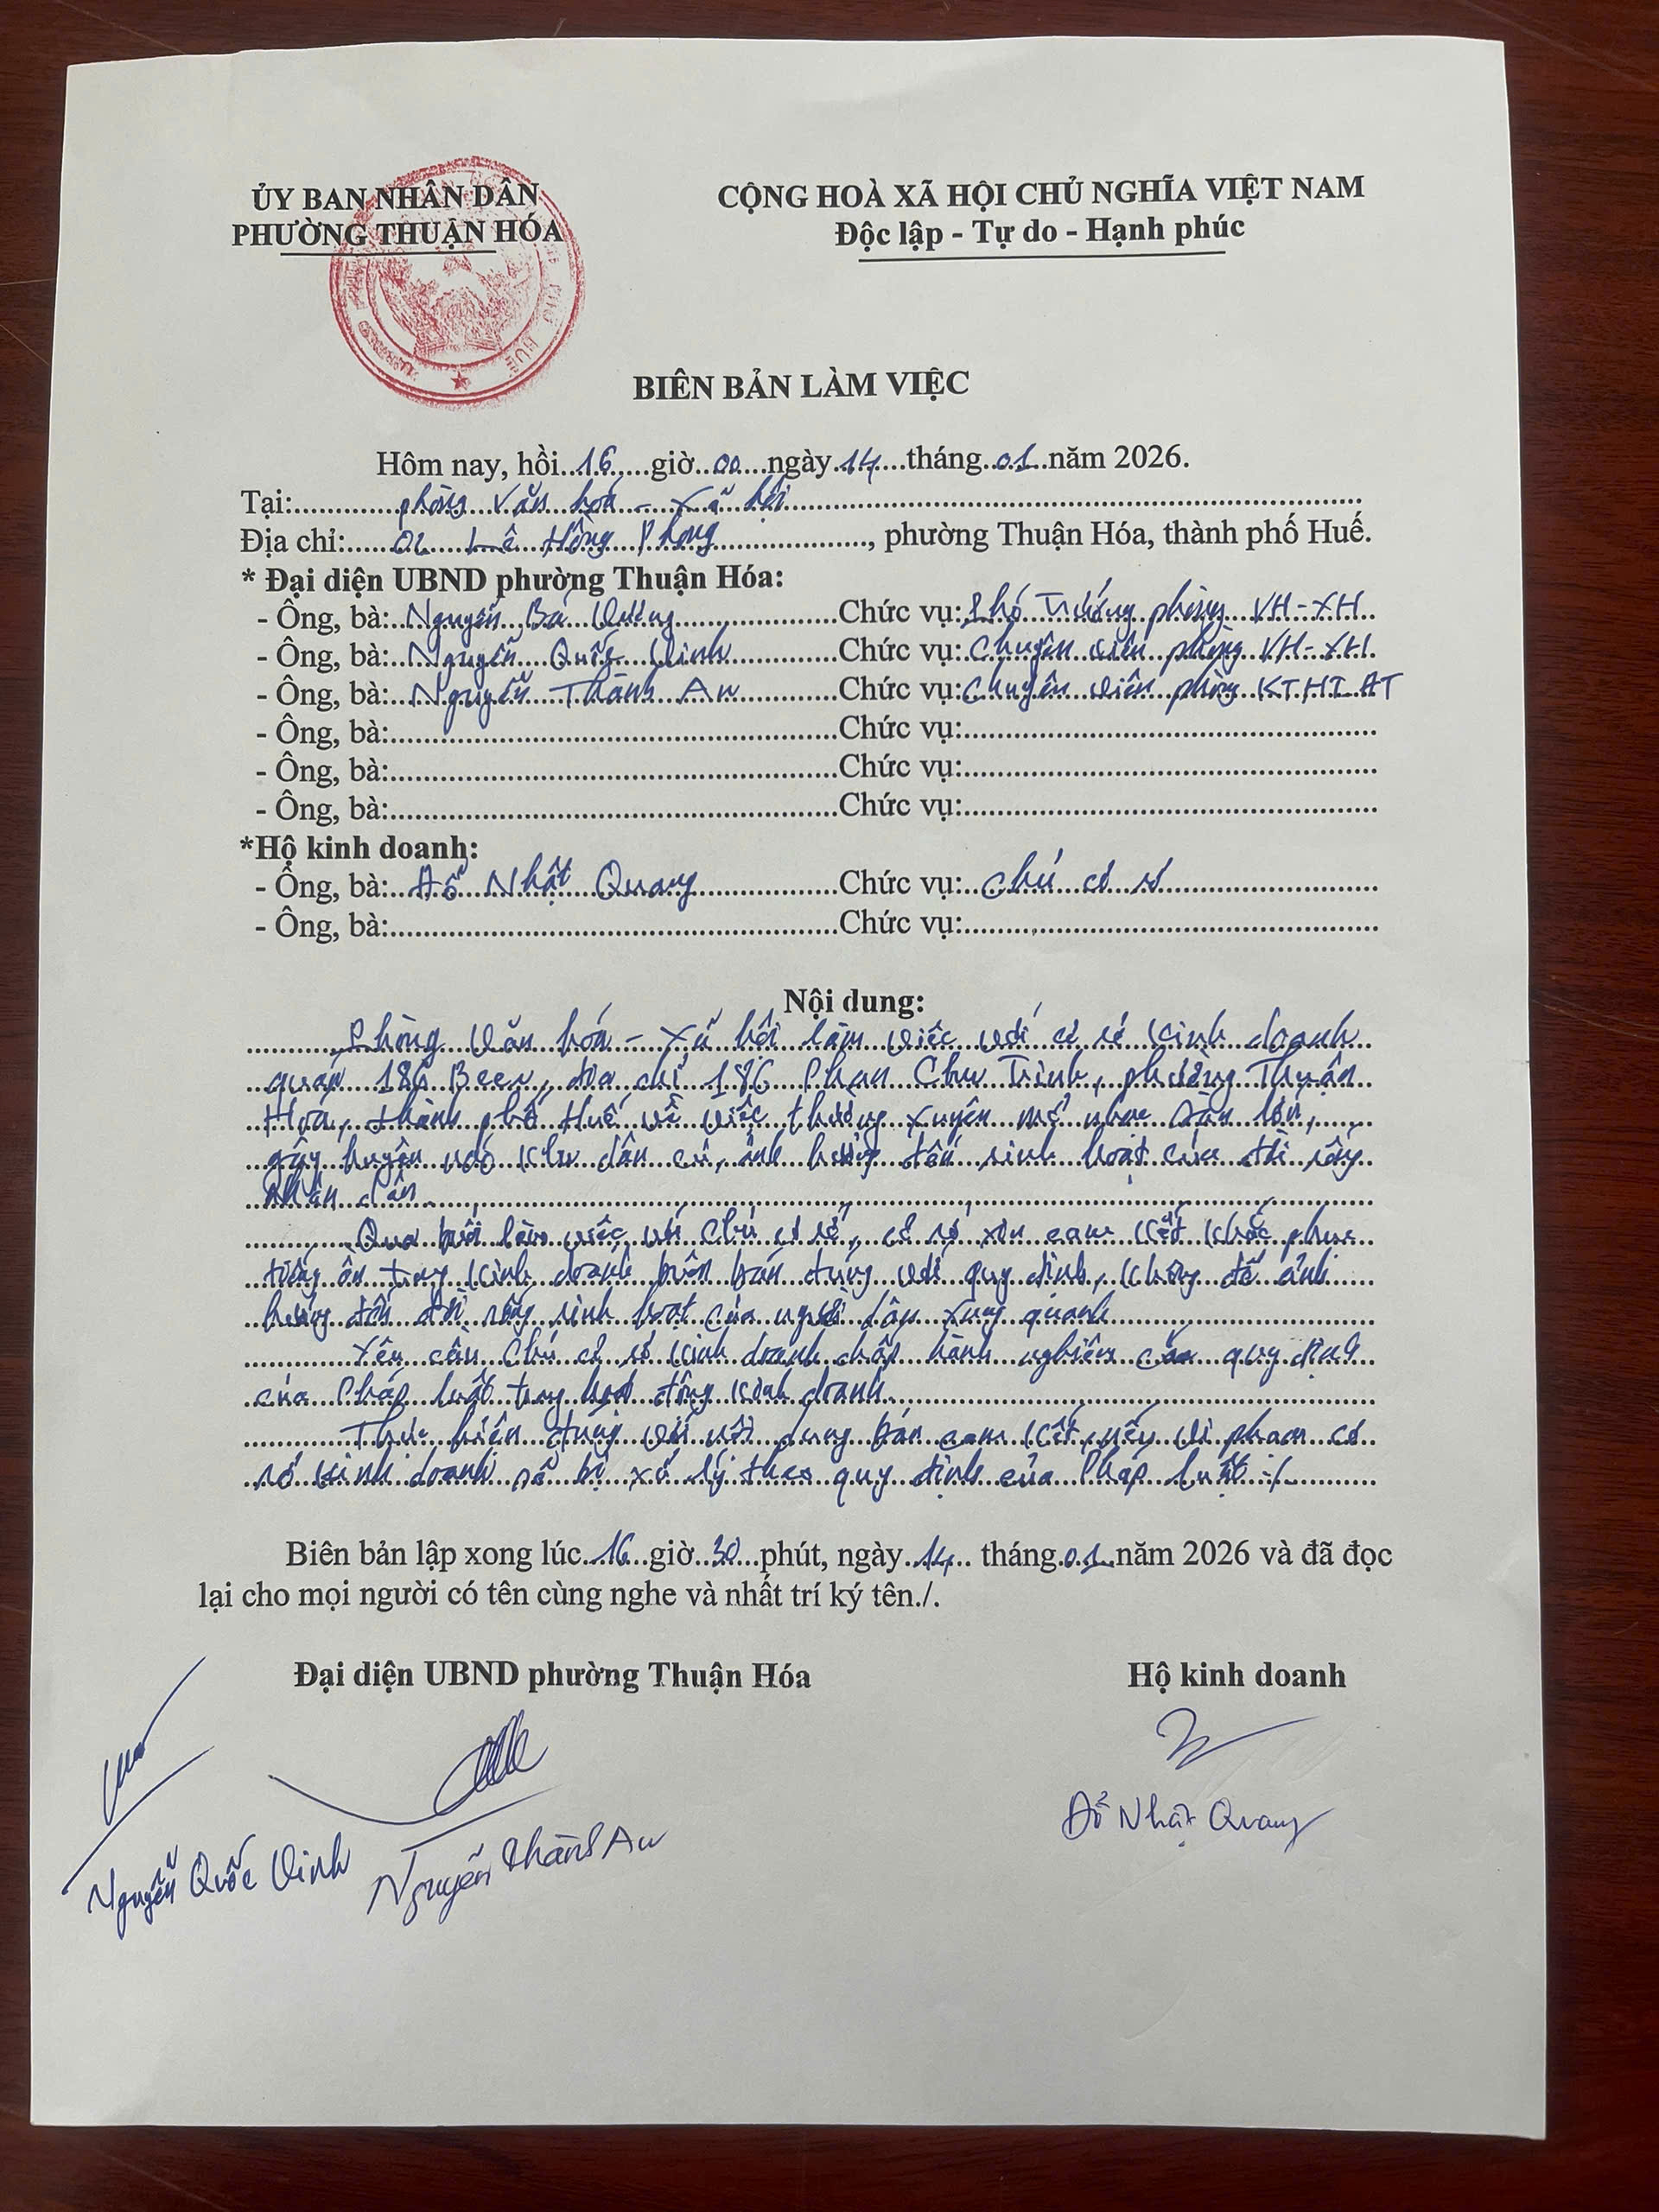 ỦY BAN NHÂN DÂN
PHƯỜNG THUẬN HÓA
CỘNG HOÀ XÃ HỘI CHỦ NGHĨA VIỆT NAM
Độc lập - Tự do - Hạnh phúc
HUẾ
BIÊN BẢN LÀM VIỆC
Hôm nay, hồi..16....giờ..00...ngày.14...tháng..01..năm 2026.
Tại:.............phòng Văn hoá - Xã hội..........................
Địa chỉ:.....02 Lê Hồng Phong..................., phường Thuận Hóa, thành phố Huế.
* Đại diện UBND phường Thuận Hóa:
- Ông, bà:..Nguyễn Bá Vương...................Chức vụ:.Phó Trưởng phòng VH-XH..
- Ông, bà:..Nguyễn Quốc Vinh.............Chức vụ:.Chuyên viên phòng VH-XH.
- Ông, bà:..Nguyễn Thành An............Chức vụ:Chuyên viên phòng KTHT-ĐT
- Ông, bà:..........................................................Chức vụ:......................................................
- Ông, bà:..........................................................Chức vụ:......................................................
- Ông, bà:..........................................................Chức vụ:......................................................
*Hộ kinh doanh:
- Ông, bà:..Đỗ Nhật Quang..................Chức vụ:..chủ cơ sở...........................
- Ông, bà:..........................................................Chức vụ:......................................................
Nội dung:
Phòng Văn hóa - Xã hội làm việc với cơ sở kinh doanh
quán 186 Beer, địa chỉ 186 Phan Chu Trinh, phường Thuận
Hóa, thành phố Huế về việc thường xuyên mở nhạc dàn lớn,
gây huyên náo khu dân cư, ảnh hưởng đến sinh hoạt của đời sống
nhân dân
Qua buổi làm việc với chủ cơ sở, cơ sở xin cam kết khắc phục
tiếng ồn trong kinh doanh buôn bán đúng với quy định, không để ảnh
hưởng đến đời sống sinh hoạt của người dân xung quanh
Yêu cầu Chủ cơ sở kinh doanh chấp hành nghiêm các quy định
của Pháp luật trong hoạt động kinh doanh.
Thực hiện đúng với nội dung bản cam kết, nếu vi phạm cơ
sở kinh doanh sẽ bị xử lý theo quy định của Pháp luật ./.
Biên bản lập xong lúc..16..giờ..30..phút, ngày.14.. tháng.01..năm 2026 và đã đọc
lại cho mọi người có tên cùng nghe và nhất trí ký tên./.
Đại diện UBND phường Thuận Hóa
Hộ kinh doanh
Nguyễn Quốc Vinh
Nguyễn Thành An
Đỗ Nhật Quang